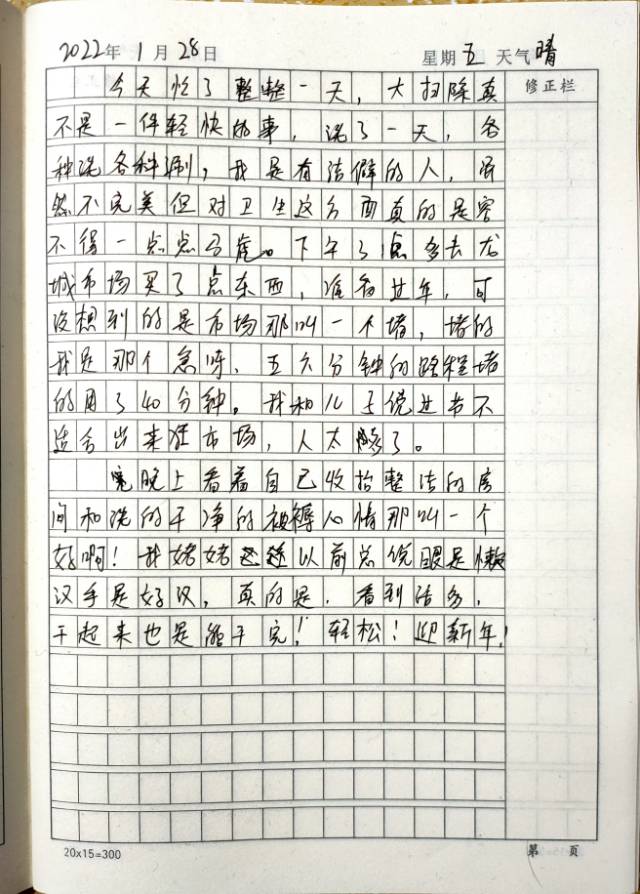 2022年1月28日 星期五 天气晴
今天忙了整整一天，大扫除真 修正栏
不是一件轻快的事，洗了一天，各
种洗各种涮，我是有洁僻的人，虽
然不完美但对卫生这方面真的是容
不得一点点马虎。下午3点多去龙
城市场买了点东西，准备过年，可
没想到的是市场那叫一个堵，堵的
我是那个急呀，五六分钟的路程堵
的用了40分钟，我和儿子说过节不
适合出来逛市场，人太多了。
晚上看着自己收拾整洁的房
间和洗的干净的被褥心情那叫一个
好啊！我姥姥以前总说眼是懒
汉手是好汉，真的是，看到活多，
干起来也是能干完！轻松！迎新年！
20x15=300 第 页